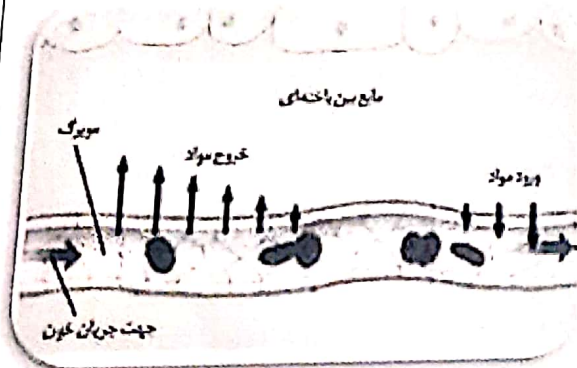 مایع بین یاخته‌ای
مویرگ
خروج مواد
ورود مواد
جهت جریان خون